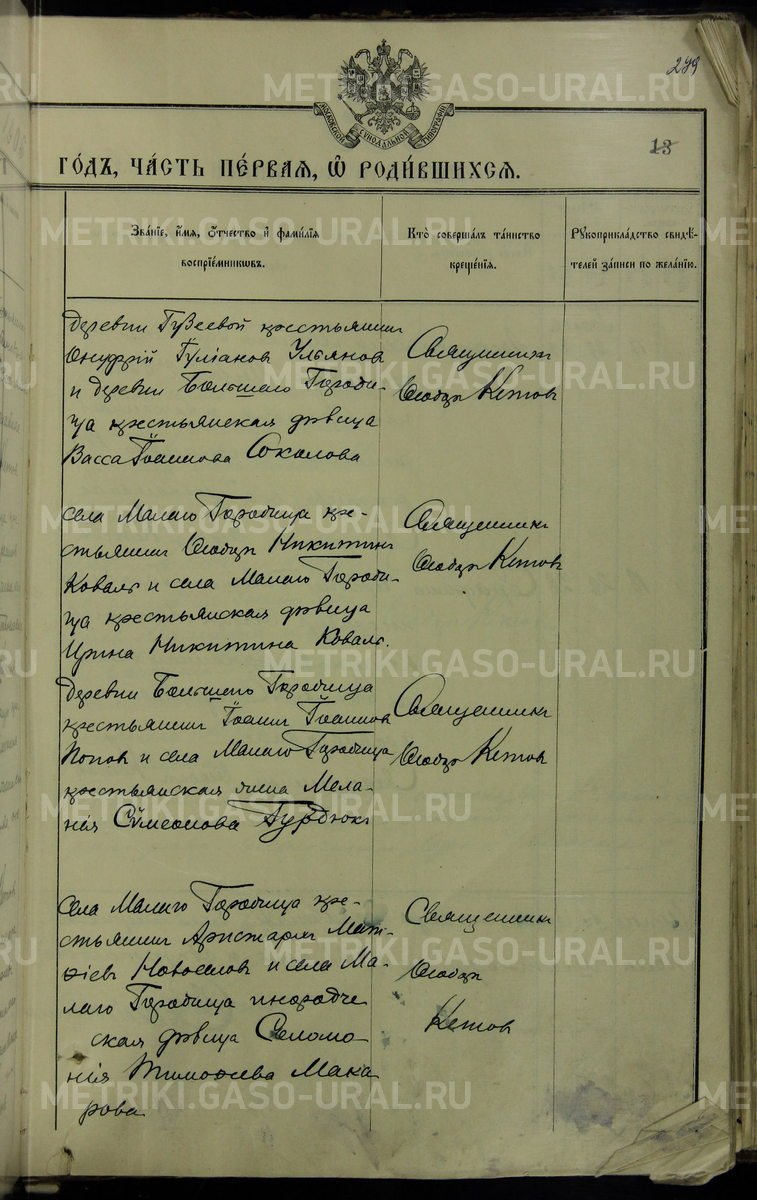 299
МОСКОВСКОЙ СѴНОДАЛЬНОЙ ТИПОГРАФІИ
13
ГО́ДЪ, ЧА́СТЬ ПЕ́РВАЯ, Ѽ РОДИ́ВШИХСЯ.
Зва́ніе, и́мя, ѻ́тчество и҆ фами́лія
воспріе́мникѡвъ.
Кто̀ соверша́лъ та́инство
креще́нія.
Рꙋкоприкла́дство свидѣ́-
телей за́писи по жела́нію.
деревни Гузеевой крестьянинъ
Онуфрій Іуліановъ Ульяновъ
и деревни Большого Городи-
ща крестьянская дѣвица
Васса Іоаннова Соколова
Священникъ
Ѳеодоръ Кетовъ
села Малаго Городища кре-
стьянинъ Ѳеодоръ Никитинъ
Коваль и села Малаго Городи-
ща крестьянская дѣвица
Ирина Никитина Коваль.
Священникъ
Ѳеодоръ Кетовъ
деревни Большего Городища
крестьянинъ Іоаннъ Іоанновъ
Поповъ и села Малаго Городища
крестьянская жена Мела-
нія Сѵмеонова Бурдюкъ
Священникъ
Ѳеодоръ Кетовъ
села Малаго Городища кре-
стьянинъ Аристархъ Мат-
ѳіевъ Новоселовъ и села Ма-
лаго Городища инородче
ская дѣвица Соломо
нія Тимоѳеева Мака
рова
Священникъ
Ѳеодоръ
Кетовъ
METRIKI.GASO-URAL.RU